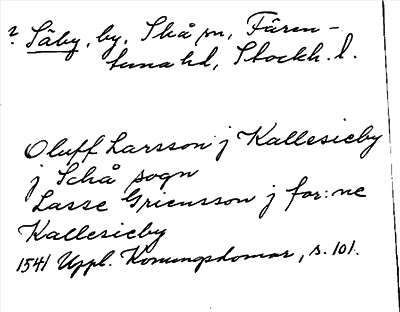 ? Säby, by, Skå sn, Fären-
tuna hd, Stockh. l.
Oluff Larsson j Kallesieby
j Schå sogn
Lasse Griensson j for:ne
Kallesieby
1541 Uppl. Konungsdomar, s. 101.